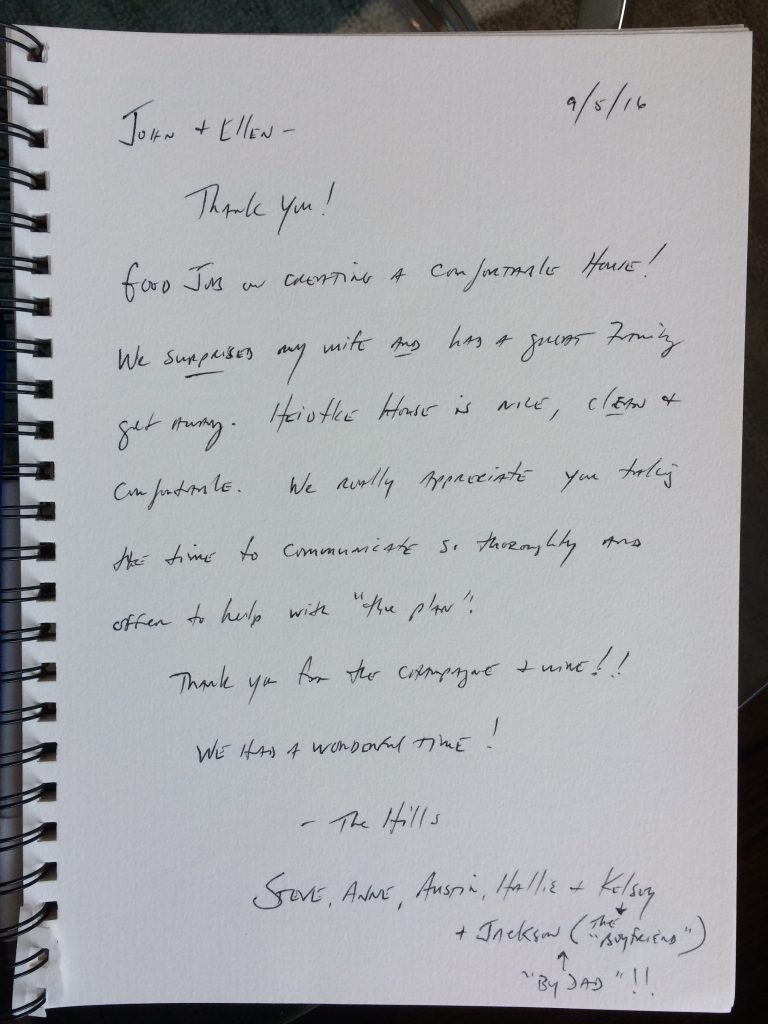 9/5/16
John + Ellen –
Thank you!
Good Job on creating a comfortable House!
We surprised my wife and had a great Family
get away. Heidtke House is nice, clean +
comfortable. We really appreciate you taking
the time to communicate so thoroughly and
offer to help with "the plan".
Thank you for the champagne + wine!!
We had a wonderful time!
– The Hills
Steve, Anne, Austin, Hallie + Kelsey
+ Jackson (The "Boyfriend")
"By Dad"!!